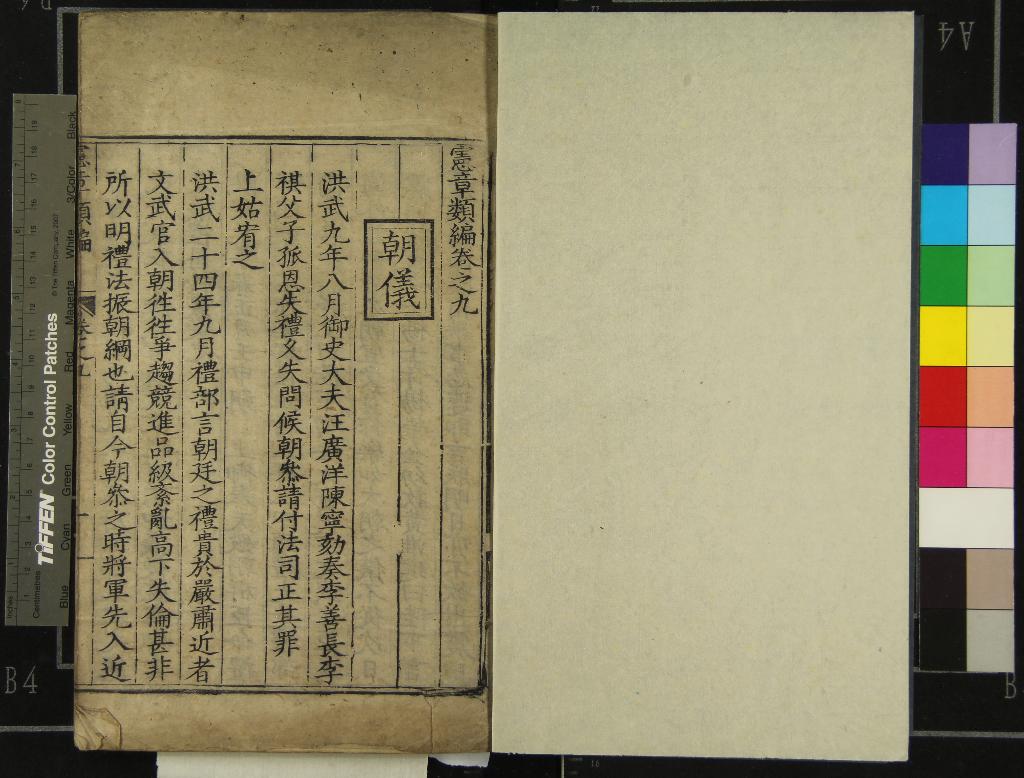 憲章類編卷之九
朝儀
洪武九年八月御史大夫汪廣洋陳寧劾奏李善長李
祺父子孤恩失禮久失問候朝叅請付法司正其罪
上姑宥之
洪武二十四年九月禮部言朝廷之禮貴於嚴肅近者
文武官入朝徃徃爭趨競進品級紊亂高下失倫甚非
所以明禮法振朝綱也請自今朝叅之時將軍先入近
憲章類編 卷之九 一
TIFFEN Color Control Patches
© The Tiffen Company, 2007
Blue Cyan Green Yellow Red Magenta White 3/Color Black
Inches
Centimetres
A4
B4
B